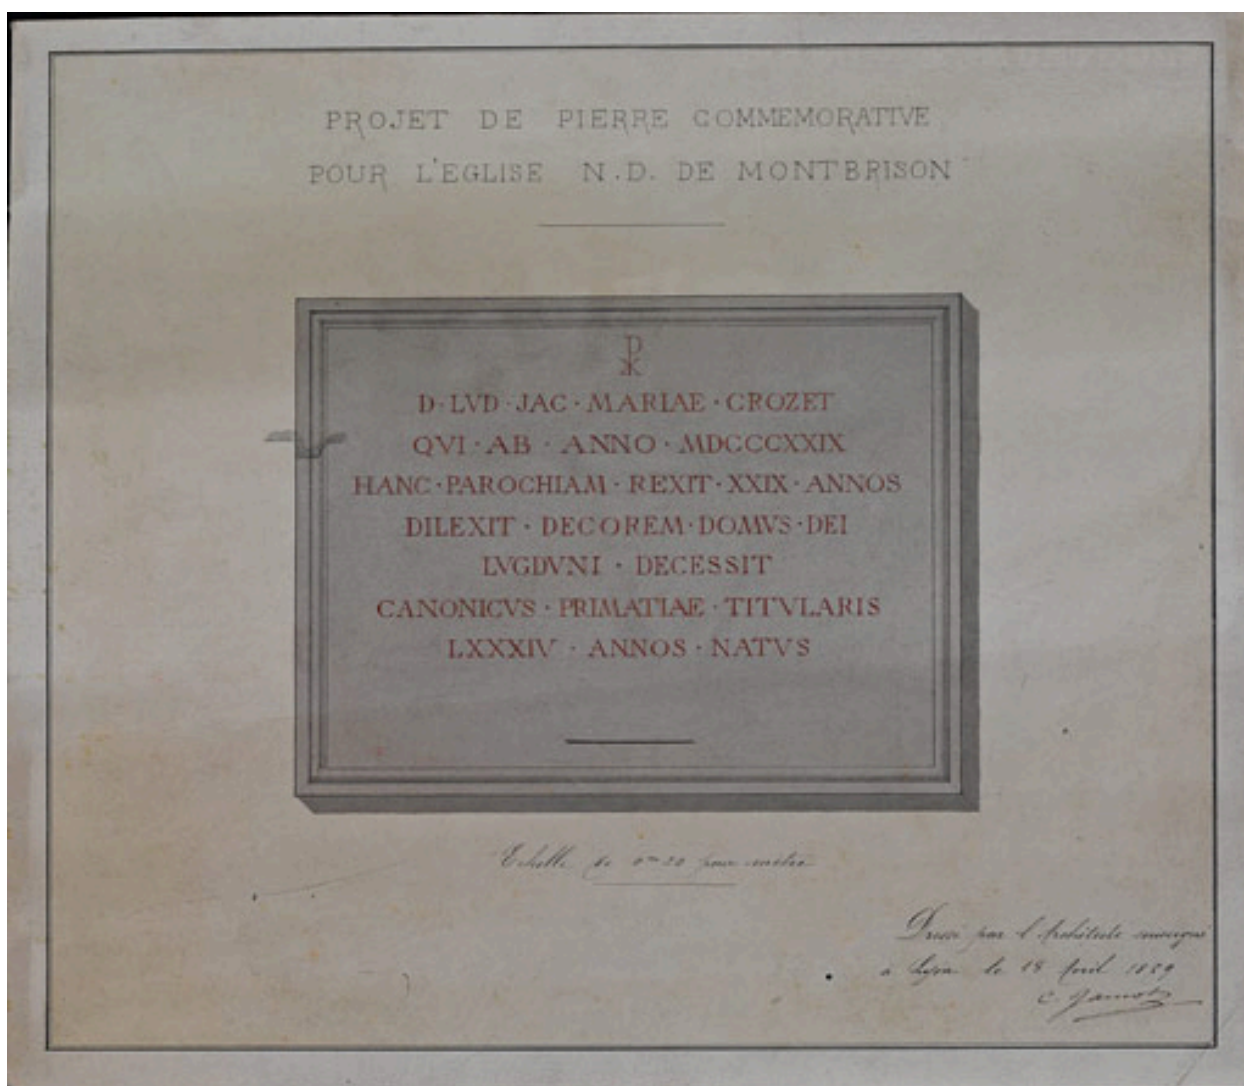 PROJET DE PIERRE COMMEMORATIVE
POUR L'EGLISE N.D. DE MONTBRISON
D·LVD·JAC·MARIAE·CROZET
QVI·AB·ANNO·MDCCCXXIX
HANC·PAROCHIAM·REXIT·XXIX·ANNOS
DILEXIT·DECOREM·DOMVS·DEI
LVGDVNI·DECESSIT
CANONICVS·PRIMATIAE·TITVLARIS
LXXXIV·ANNOS·NATVS
Echelle de 0m20 pour mètre
Dressé par l'Architecte soussigné
à Lyon le 18 Avril 1889